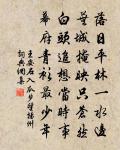 落日平林一水邊
蕪城掩映只蒼然
白頭追想當時事
幕府青衫最少年
王安石入瓜步望揚州
詞典網